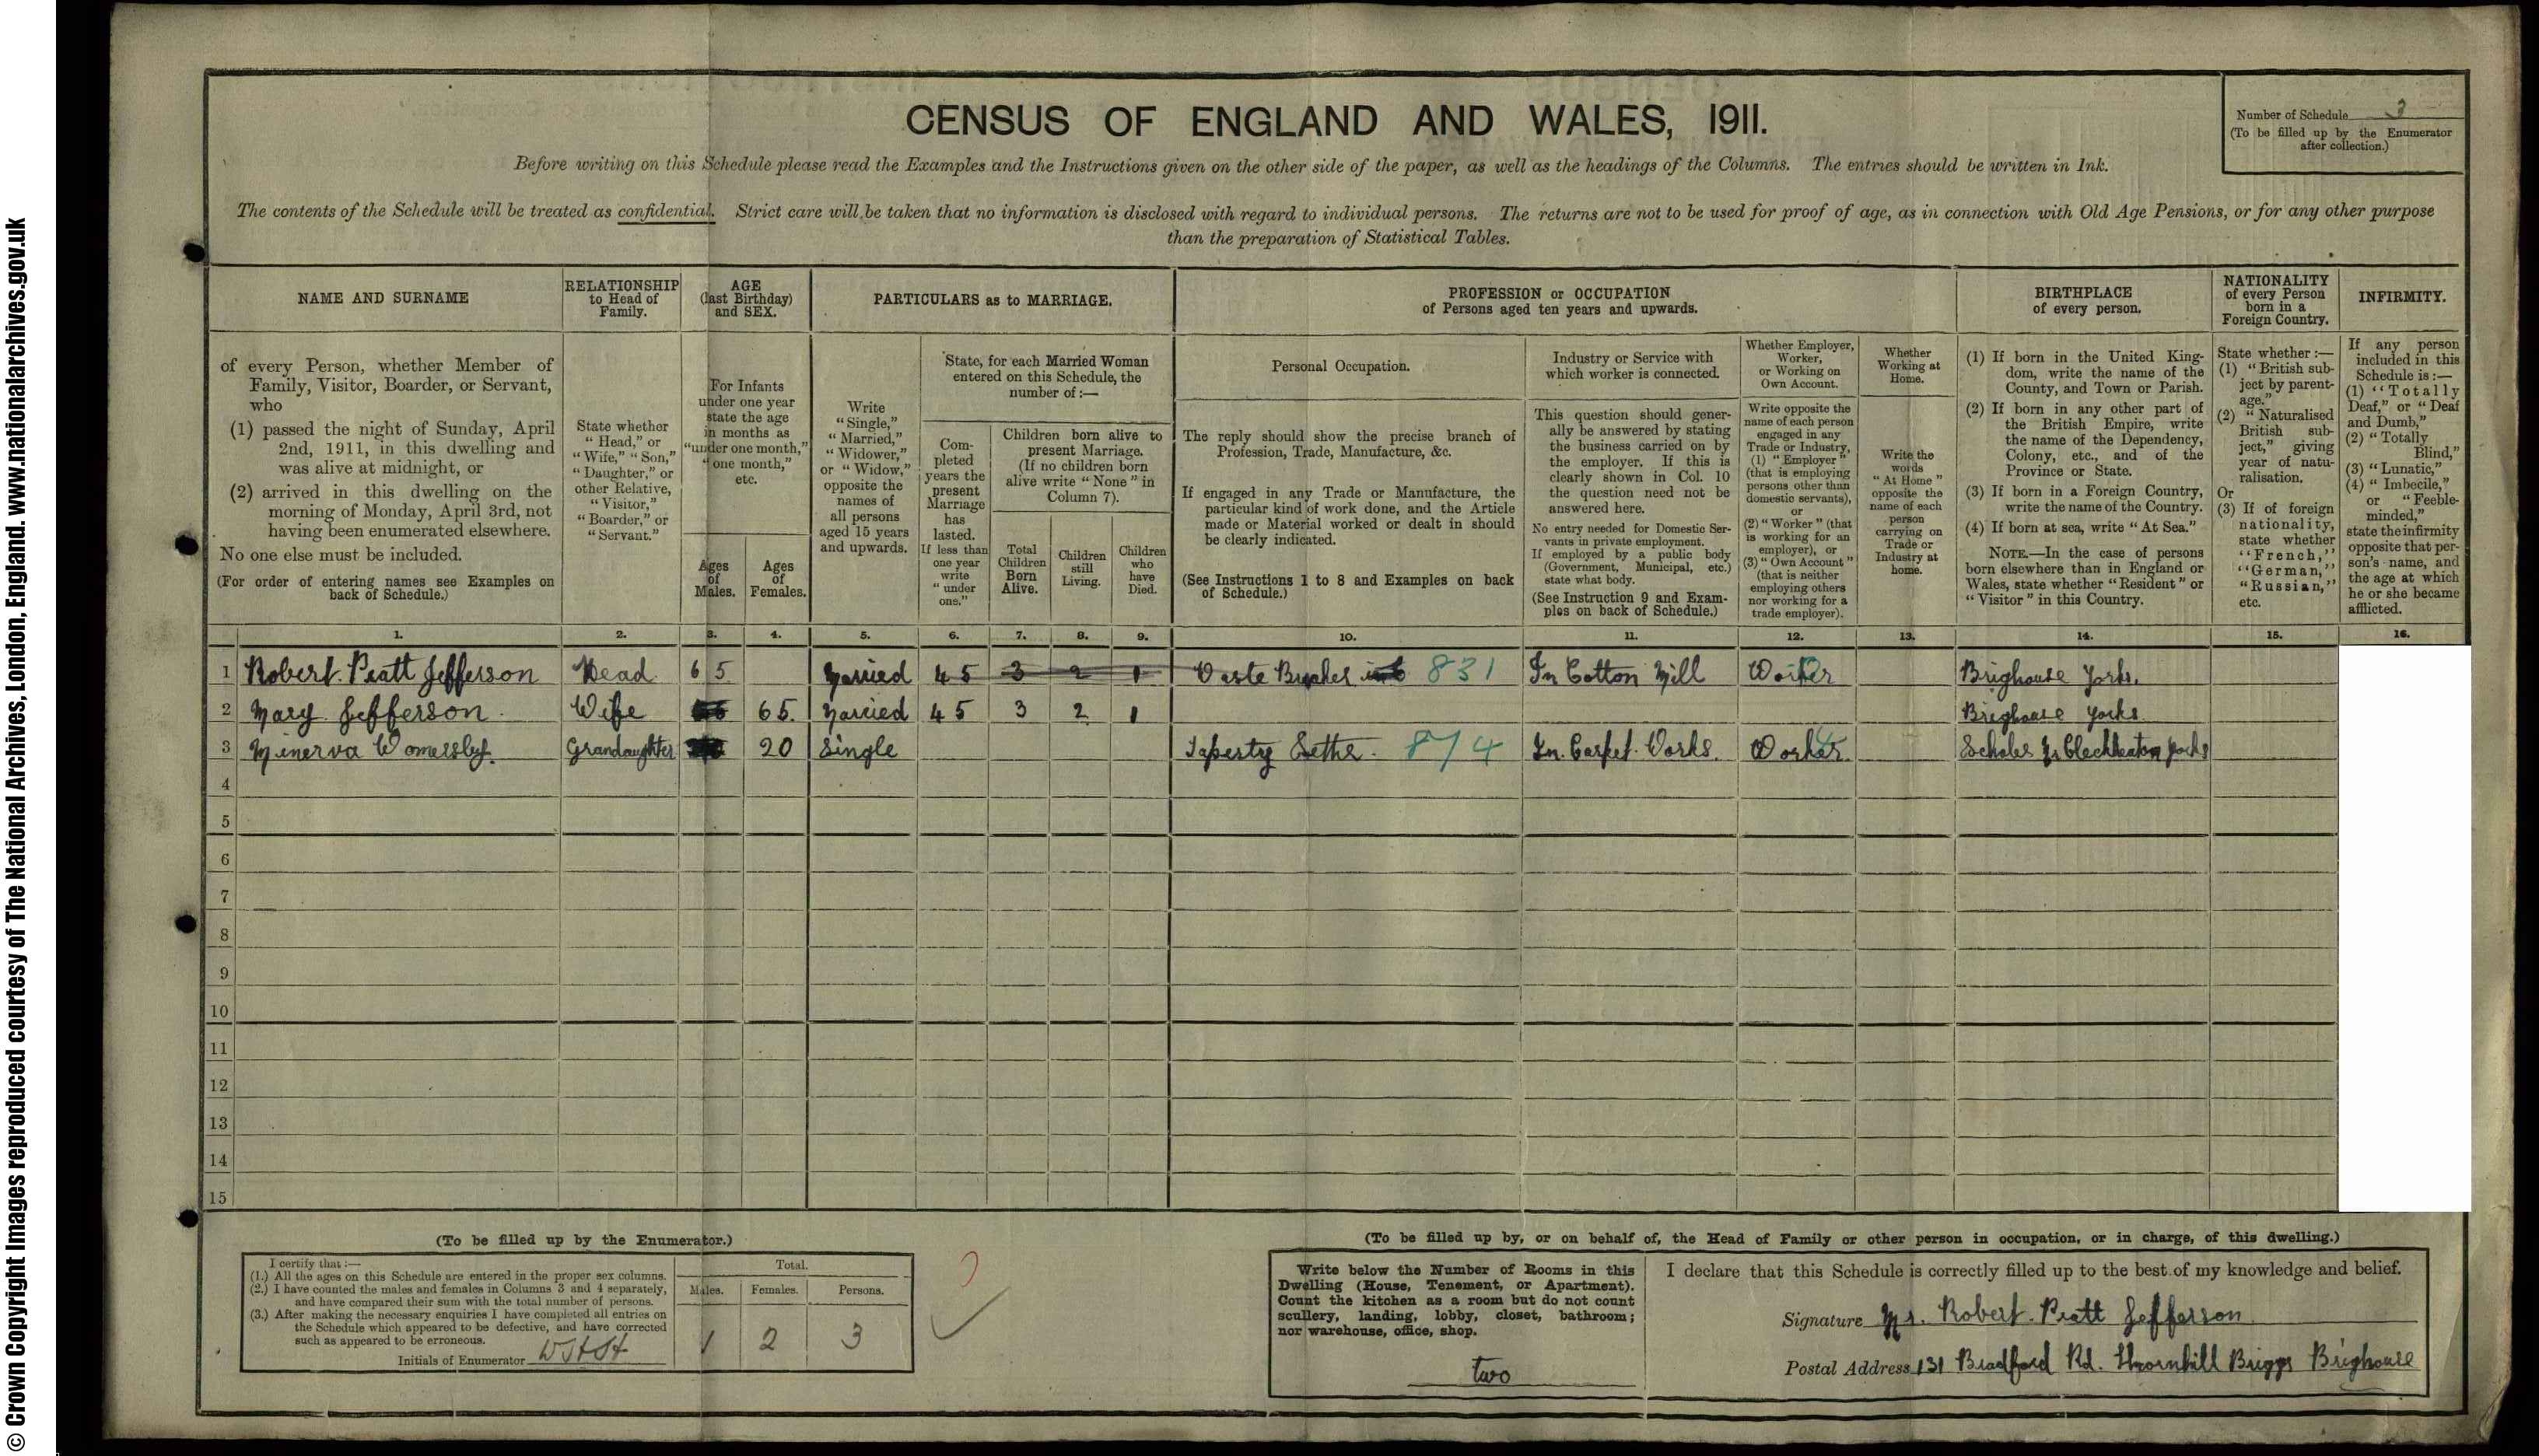 © Crown Copyright Images reproduced courtesy of The National Archives, London, England. www.nationalarchives.gov.uk
CENSUS OF ENGLAND AND WALES, 1911.
Number of Schedule 3
(To be filled up by the Enumerator
after collection.)
Before writing on this Schedule please read the Examples and the Instructions given on the other side of the paper, as well as the headings of the Columns. The entries should be written in Ink.
The contents of the Schedule will be treated as confidential. Strict care will be taken that no information is disclosed with regard to individual persons. The returns are not to be used for proof of age, as in connection with Old Age Pensions, or for any other purpose
than the preparation of Statistical Tables.
NAME AND SURNAME
of every Person, whether Member of
Family, Visitor, Boarder, or Servant,
who
(1) passed the night of Sunday, April
2nd, 1911, in this dwelling and
was alive at midnight, or
(2) arrived in this dwelling on the
morning of Monday, April 3rd, not
having been enumerated elsewhere.
No one else must be included.
(For order of entering names see Examples on
back of Schedule.)
RELATIONSHIP
to Head of
Family.
State whether
"Head," or
"Wife," "Son,"
"Daughter," or
other Relative,
"Visitor,"
"Boarder," or
"Servant."
AGE
(last Birthday)
and SEX.
For Infants
under one year
state the age
in months as
"under one month,"
"one month,"
etc.
Ages
of
Males.
Ages
of
Females.
PARTICULARS as to MARRIAGE.
Write
"Single,"
"Married,"
"Widower,"
or "Widow,"
opposite the
names of
all persons
aged 15 years
and upwards.
State, for each Married Woman
entered on this Schedule, the
number of :—
Com-
pleted
years the
present
Marriage
has
lasted.
If less than
one year
write
"under
one."
Children born alive to
present Marriage.
(If no children born
alive write "None" in
Column 7).
Total
Children
Born
Alive.
Children
still
Living.
Children
who
have
Died.
PROFESSION or OCCUPATION
of Persons aged ten years and upwards.
Personal Occupation.
The reply should show the precise branch of
Profession, Trade, Manufacture, &c.
If engaged in any Trade or Manufacture, the
particular kind of work done, and the Article
made or Material worked or dealt in should
be clearly indicated.
(See Instructions 1 to 8 and Examples on back
of Schedule.)
Industry or Service with
which worker is connected.
This question should gener-
ally be answered by stating
the business carried on by
the employer. If this is
clearly shown in Col. 10
the question need not be
answered here.
No entry needed for Domestic Ser-
vants in private employment.
If employed by a public body
(Government, Municipal, etc.)
state what body.
(See Instruction 9 and Exam-
ples on back of Schedule.)
Whether Employer,
Worker,
or Working on
Own Account.
Write opposite the
name of each person
engaged in any
Trade or Industry,
(1) "Employer"
(that is employing
persons other than
domestic servants),
or
(2) "Worker" (that
is working for an
employer), or
(3) "Own Account"
(that is neither
employing others
nor working for a
trade employer).
Whether
Working at
Home.
Write the
words
"At Home"
opposite the
name of each
person
carrying on
Trade or
Industry at
home.
BIRTHPLACE
of every person.
(1) If born in the United King-
dom, write the name of the
County, and Town or Parish.
(2) If born in any other part of
the British Empire, write
the name of the Dependency,
Colony, etc., and of the
Province or State.
(3) If born in a Foreign Country,
write the name of the Country.
(4) If born at sea, write "At Sea."
NOTE.—In the case of persons
born elsewhere than in England or
Wales, state whether "Resident" or
"Visitor" in this Country.
NATIONALITY
of every Person
born in a
Foreign Country.
State whether :—
(1) "British sub-
ject by parent-
age."
(2) "Naturalised
British sub-
ject," giving
year of natu-
ralisation.
Or
(3) If of foreign
nationality,
state whether
"French,"
"German,"
"Russian,"
etc.
INFIRMITY.
If any person
included in this
Schedule is :—
(1) "Totally
Deaf," or "Deaf
and Dumb,"
(2) "Totally
Blind,"
(3) "Lunatic,"
(4) "Imbecile,"
or "Feeble-
minded,"
state the infirmity
opposite that per-
son's name, and
the age at which
he or she became
afflicted.
1. 2. 3. 4. 5. 6. 7. 8. 9. 10. 11. 12. 13. 14. 15. 16.
1 Robert Pratt Jefferson Head 65 Married 45 3 2 1 Waste 831 In Cotton Mill Worker Brighouse Yorks.
2 Mary Jefferson Wife 65 Married 45 3 2 1 Brighouse Yorks
3 Minerva Womersley Grandaughter 20 Single Tapestry Setter 874 In Carpet Works. Worker Scholes Nr Cleckheaton Yorks
4
5
6
7
8
9
10
11
12
13
14
15
(To be filled up by the Enumerator.)
I certify that :—
(1.) All the ages on this Schedule are entered in the proper sex columns.
(2.) I have counted the males and females in Columns 3 and 4 separately,
and have compared their sum with the total number of persons.
(3.) After making the necessary enquiries I have completed all entries on
the Schedule which appeared to be defective, and have corrected
such as appeared to be erroneous.
Initials of Enumerator
Total.
Males. Females. Persons.
1 2 3
(To be filled up by, or on behalf of, the Head of Family or other person in occupation, or in charge, of this dwelling.)
Write below the Number of Rooms in this
Dwelling (House, Tenement, or Apartment).
Count the kitchen as a room but do not count
scullery, landing, lobby, closet, bathroom;
nor warehouse, office, shop.
two
I declare that this Schedule is correctly filled up to the best of my knowledge and belief.
Signature Mr. Robert Pratt Jefferson
Postal Address 131 Bradford Rd. Thornhill Briggs Brighouse